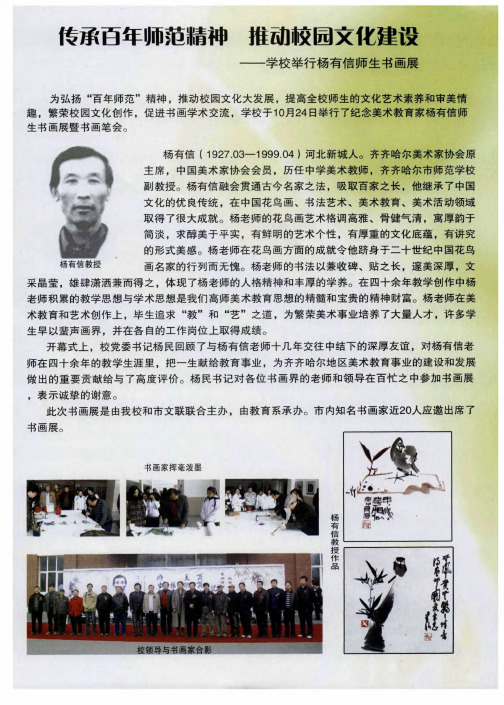 传承百年师范精神 推动校园文化建设
——学校举行杨有信师生书画展
为弘扬“百年师范”精神，推动校园文化大发展，提高全校师生的文化艺术素养和审美情
趣，繁荣校园文化创作，促进书画学术交流，学校于10月24日举行了纪念美术教育家杨有信师
生书画展暨书画笔会。
杨有信（1927.03—1999.04）河北新城人。齐齐哈尔美术家协会原
主席，中国美术家协会会员，历任中学美术教师，齐齐哈尔市师范学校
副教授。杨有信融会贯通古今名家之法，吸取百家之长，他继承了中国
文化的优良传统，在中国花鸟画、书法艺术、美术教育、美术活动领域
取得了很大成就。杨老师的花鸟画艺术格调高雅、骨健气清，寓厚韵于
简淡，求醇美于平实，有鲜明的艺术个性，有厚重的文化底蕴，有讲究
的形式美感。杨老师在花鸟画方面的成就令他跻身于二十世纪中国花鸟
画名家的行列而无愧。杨老师的书法以兼收碑、贴之长，邃美深厚，文
杨有信教授
采晶莹，雄肆潇洒兼而得之，体现了杨老师的人格精神和丰厚的学养。在四十余年教学创作中杨
老师积累的教学思想与学术思想是我们高师美术教育思想的精髓和宝贵的精神财富。杨老师在美
术教育和艺术创作上，毕生追求“教”和“艺”之道，为繁荣美术事业培养了大量人才，许多学
生早以蜚声画界，并在各自的工作岗位上取得成绩。
开幕式上，校党委书记杨民回顾了与杨有信老师十几年交往中结下的深厚友谊，对杨有信老
师在四十余年的教学生涯里，把一生献给教育事业，为齐齐哈尔地区美术教育事业的建设和发展
做出的重要贡献给与了高度评价。杨民书记对各位书画界的老师和领导在百忙之中参加书画展
，表示诚挚的谢意。
此次书画展是由我校和市文联联合主办，由教育系承办。市内知名书画家近20人应邀出席了
书画展。
书画家挥毫泼墨
杨有信教授作品
校领导与书画家合影